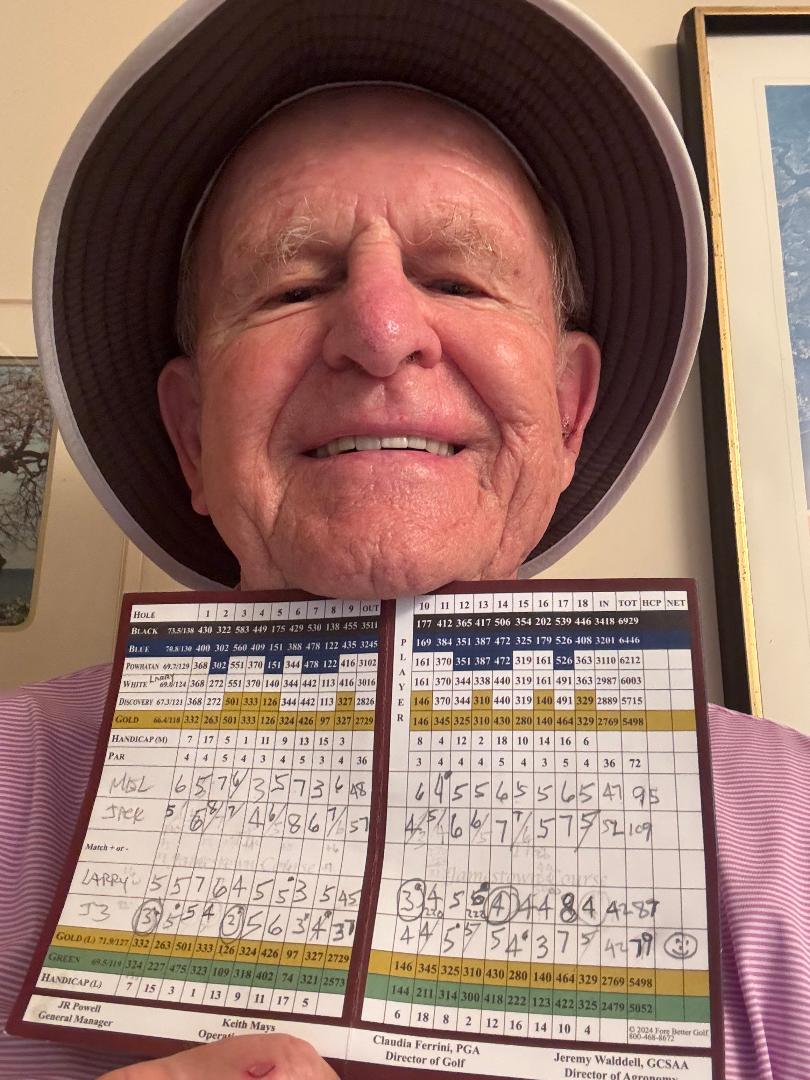 HOLE 1 2 3 4 5 6 7 8 9 OUT 10 11 12 13 14 15 16 17 18 IN TOT HCP NET
BLACK 73.5/138 430 322 583 449 175 429 530 138 455 3511 177 412 365 417 506 354 202 539 446 3418 6929
BLUE 70.8/130 400 302 560 409 151 388 478 122 435 3245 169 384 351 387 472 325 179 526 408 3201 6446
POWHATAN 69.7/129 368 302 551 370 151 344 478 122 416 3102 161 370 351 387 472 319 161 526 363 3110 6212
Larry
WHITE 69.0/124 368 272 551 370 140 344 442 113 416 3016 161 370 344 338 440 319 161 491 363 2987 6003
DISCOVERY 67.3/121 368 272 501 333 126 344 442 113 327 2826 146 370 344 310 440 319 140 491 329 2889 5715
GOLD 66.4/118 332 263 501 333 126 324 426 97 327 2729 146 345 325 310 430 280 140 464 329 2769 5498
PLAYER
HANDICAP (M) 7 17 5 1 11 9 13 15 3 8 4 12 2 18 10 14 16 6
PAR 4 4 5 4 3 4 5 3 4 36 3 4 4 4 5 4 3 5 4 36 72
6 5 7 3 5 7 3 6 48 6 4 5 5 6 5 5 6 5 47 95
JACK 51 52 109
Match + or -
LARRY 5 5 7 6 4 5 5 3 5 45 3 4 5 5 4 4 4 8 4 42 87
J3 3 5 5 4 2 5 6 3 4 37 4 4 5 5 5 4 3 7 5 42 79
GOLD (L) 71.9/127 332 263 501 333 126 324 426 97 327 2729 146 345 325 310 430 280 140 464 329 2769 5498
GREEN 69.5/119 324 227 475 323 109 318 402 74 321 2573 144 211 314 300 418 222 123 422 325 2479 5052
HANDICAP (L) 7 15 3 1 13 9 11 17 5 6 18 8 2 12 16 14 10 4
© 2024 Fore Better Golf
800-468-8672
JR Powell
General Manager
Keith Mays
Claudia Ferrini, PGA
Director of Golf
Jeremy Walddell, GCSAA
Director of Agronomy